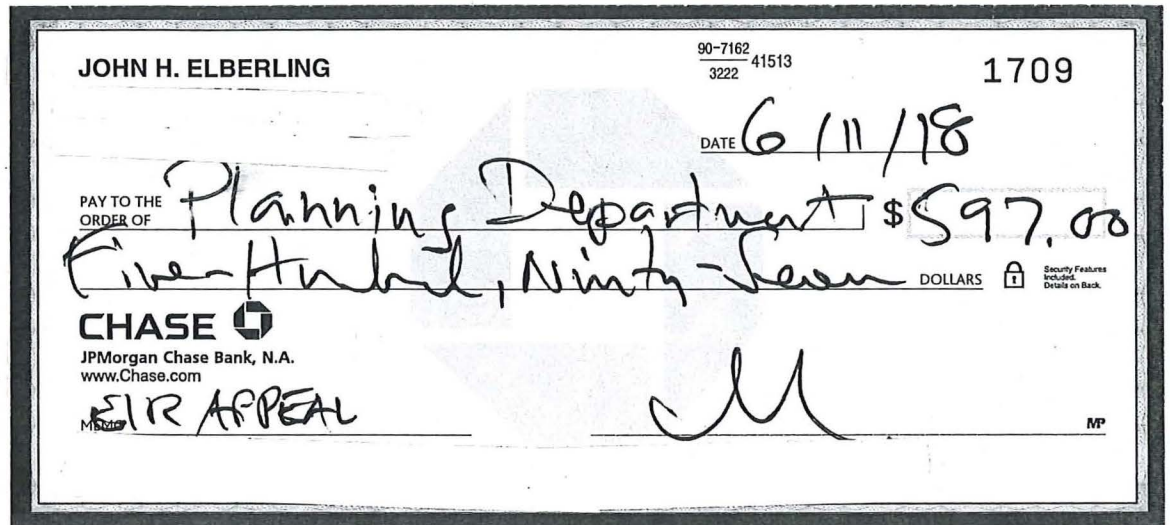 JOHN H. ELBERLING
90-7162
3222 41513
1709
DATE 6/11/18
PAY TO THE ORDER OF Planning Department $ 597.00
Five-Hundred, Ninty-Seven DOLLARS
Security Features
Included.
Details on Back.
CHASE
JPMorgan Chase Bank, N.A.
www.Chase.com
MEMO EIR APPEAL
MP